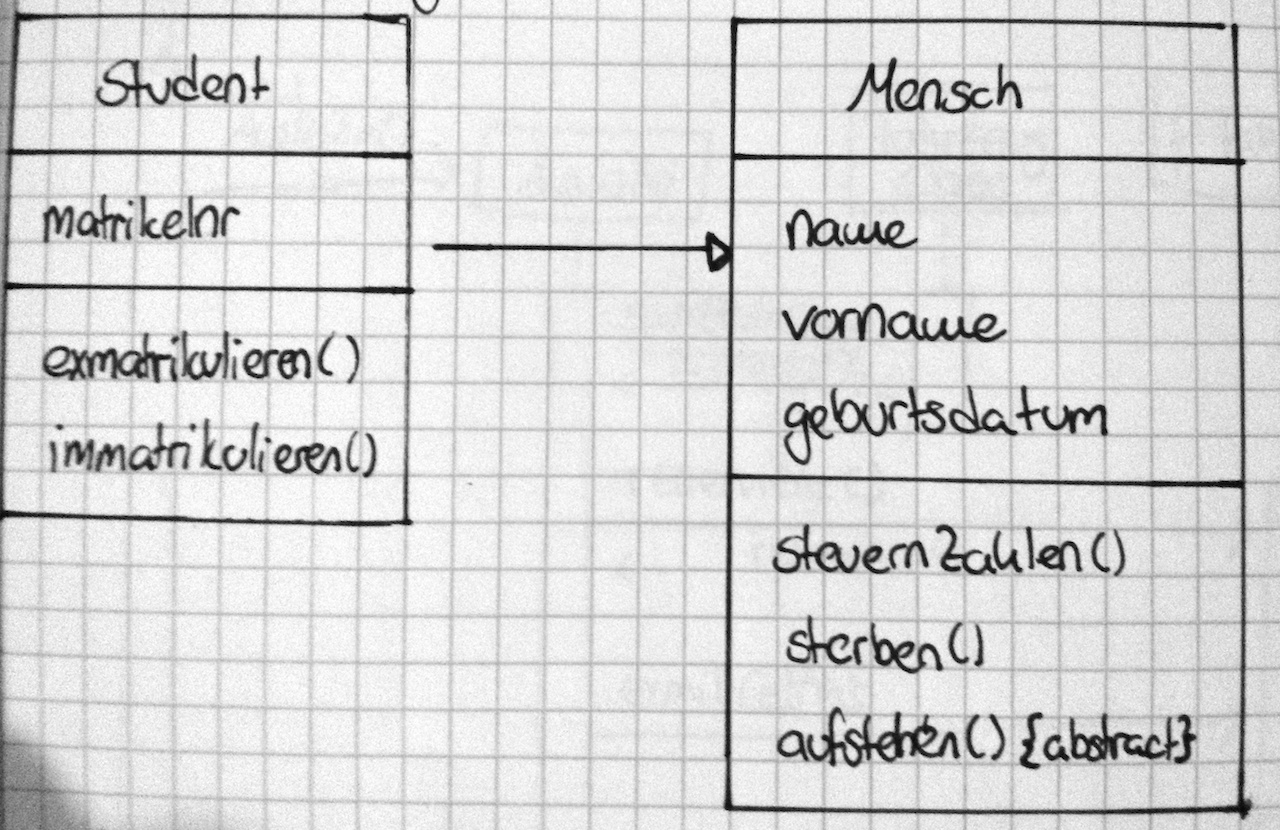 Student
matrikelnr
exmatrikulieren()
immatrikulieren()
Mensch
name
vorname
geburtsdatum
steuernZahlen()
sterben()
aufstehen() {abstract}